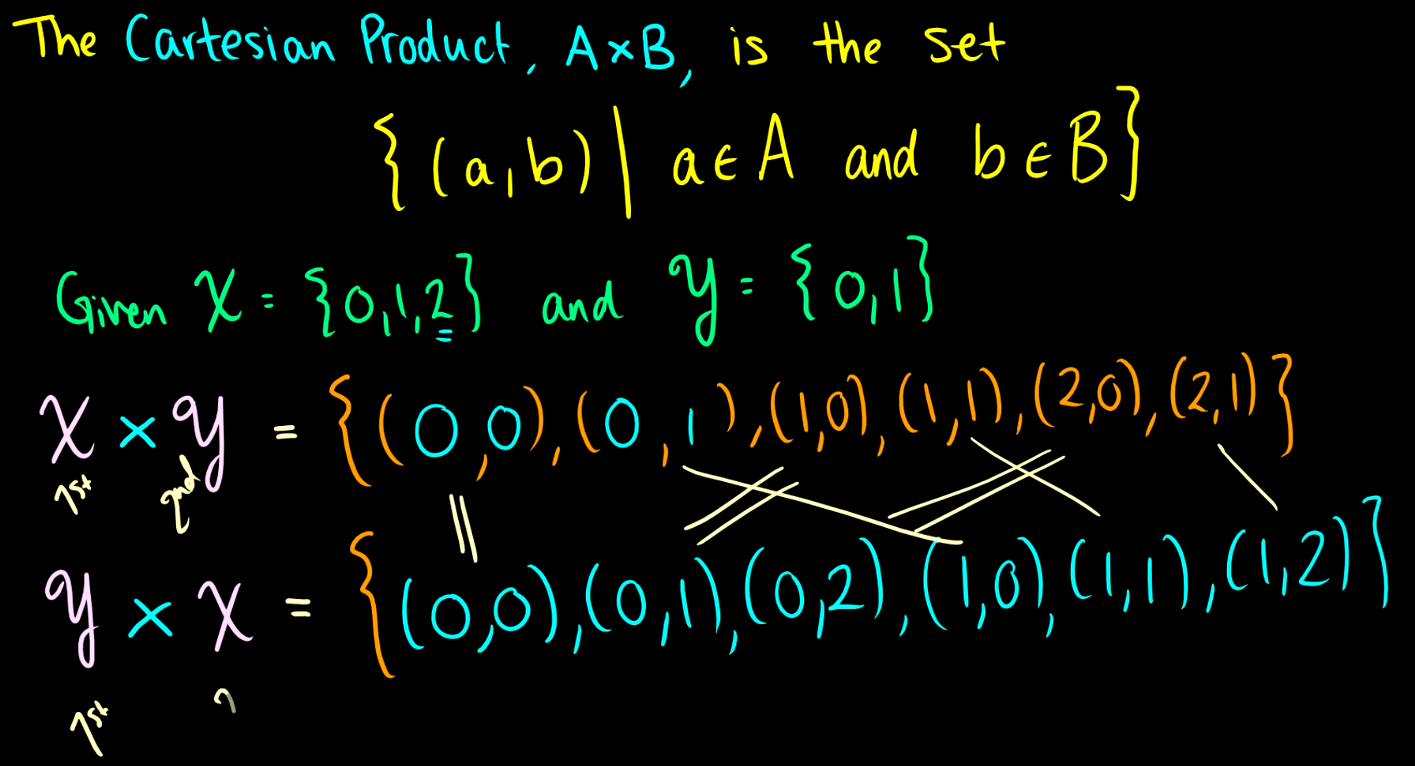 The Cartesian Product, A×B, is the set
{(a,b)| a∈A and b∈B}
Given X = {0,1,2} and Y = {0,1}
X × Y = {(0,0),(0,1),(1,0),(1,1),(2,0),(2,1)}
1st 2nd
Y × X = {(0,0),(0,1),(0,2),(1,0),(1,1),(1,2)}
1st